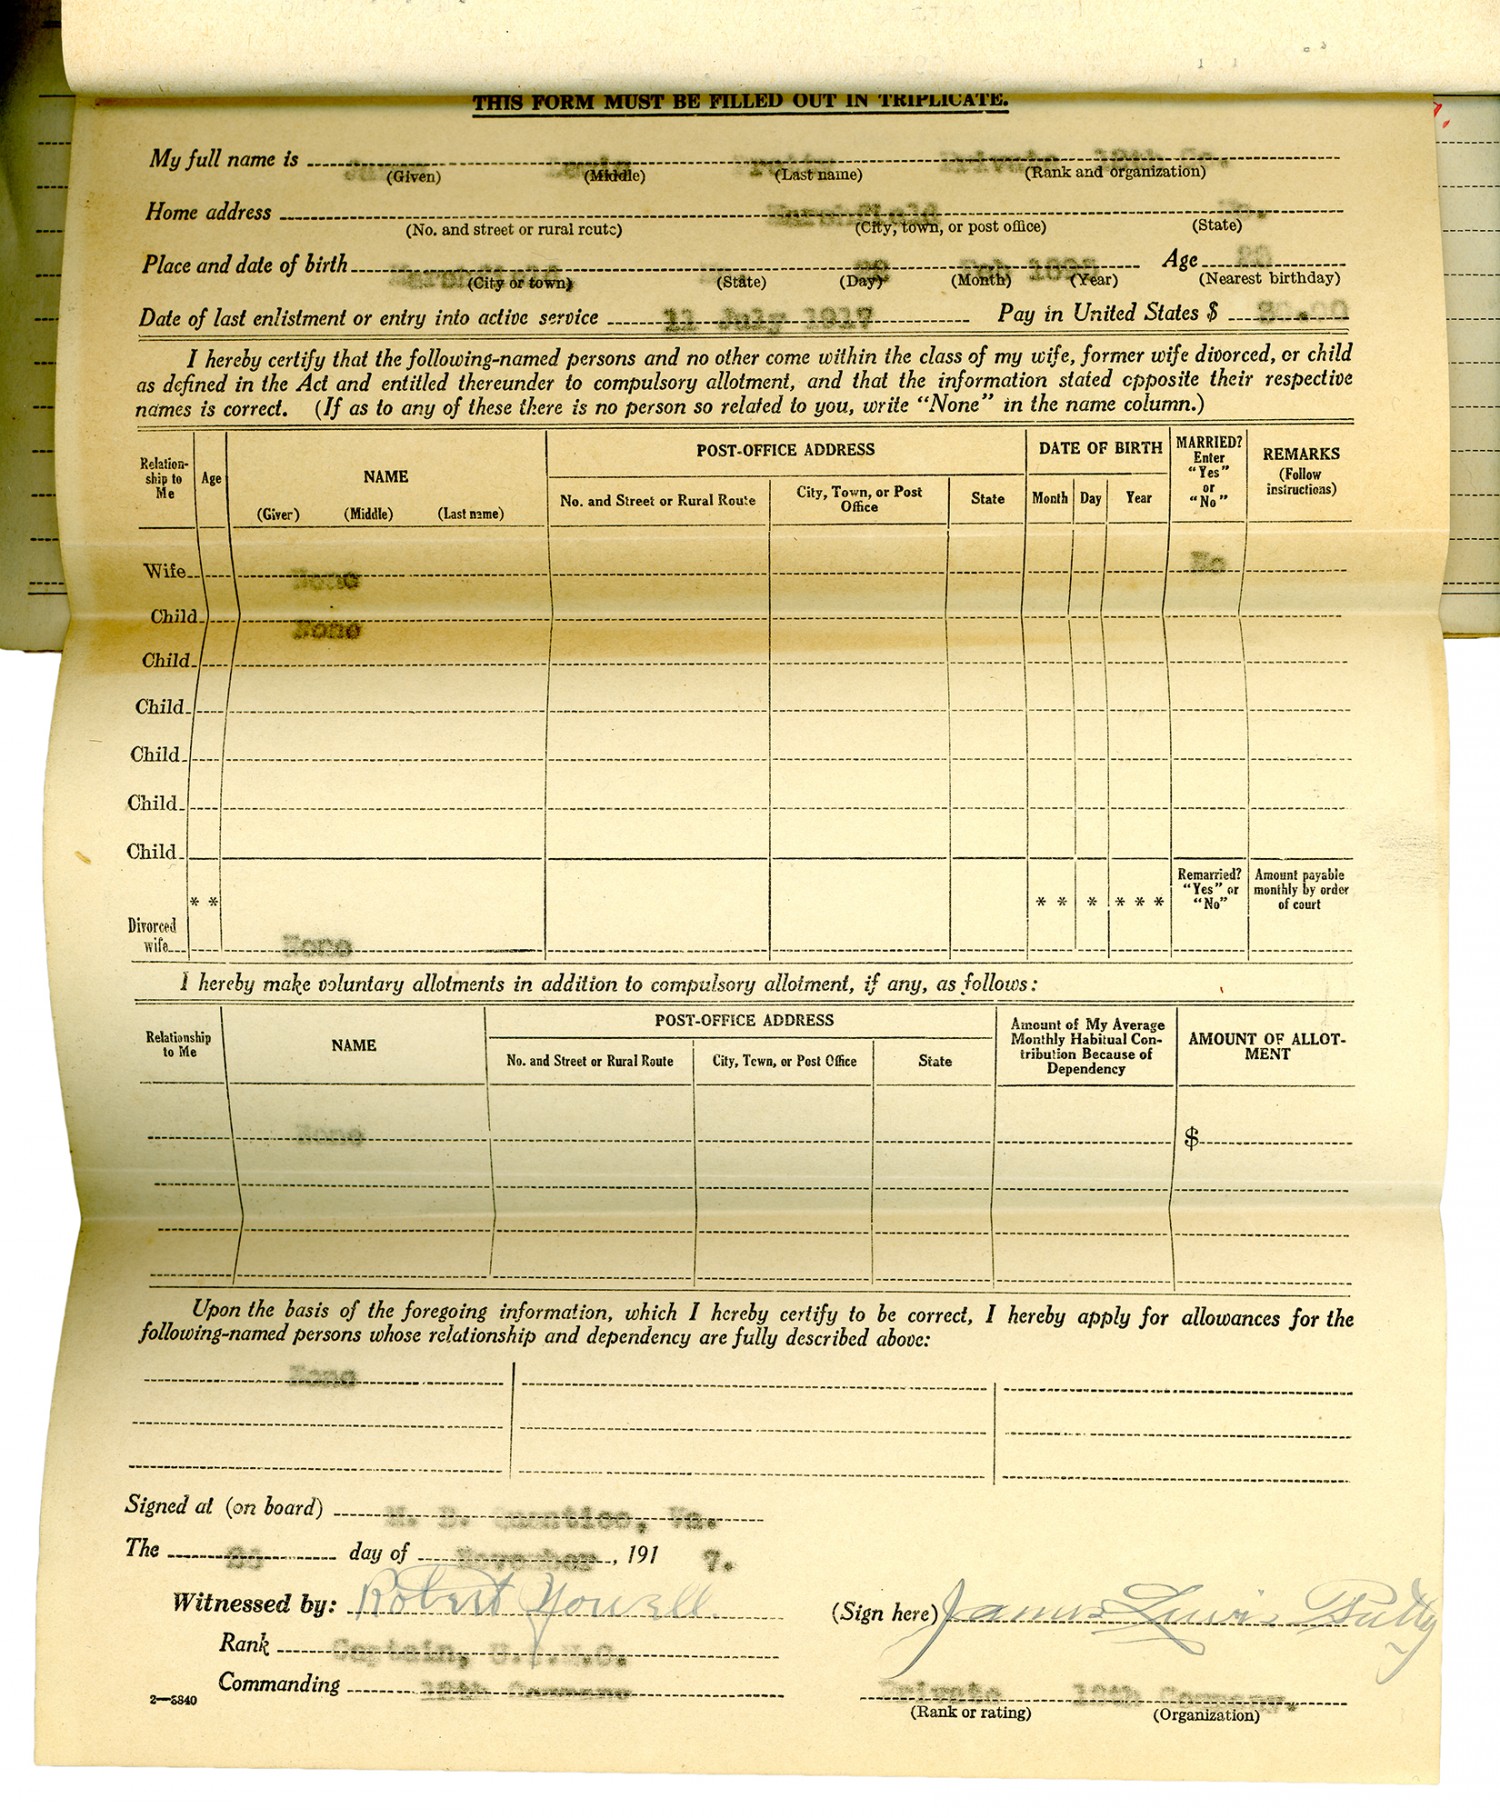 THIS FORM MUST BE FILLED OUT IN TRIPLICATE.
My full name is James Lewis Private 18th Co.
(Given) (Middle) (Last name) (Rank and organization)
Home address Marshfield Mo.
(No. and street or rural route) (City, town, or post office) (State)
Place and date of birth Marshfield Feb Age
(City or town) (State) (Day) (Month) (Year) (Nearest birthday)
Date of last enlistment or entry into active service 11 July 1917 Pay in United States $
I hereby certify that the following-named persons and no other come within the class of my wife, former wife divorced, or child
as defined in the Act and entitled thereunder to compulsory allotment, and that the information stated opposite their respective
names is correct. (If as to any of these there is no person so related to you, write "None" in the name column.)
Relation-
ship to
Me
Age
NAME
(Given) (Middle) (Last name)
POST-OFFICE ADDRESS
No. and Street or Rural Route
City, Town, or Post
Office
State
DATE OF BIRTH
Month Day Year
MARRIED?
Enter
"Yes"
or
"No"
REMARKS
(Follow
instructions)
Wife None No
Child None
Child
Child
Child
Child
Child
Remarried?
"Yes" or
"No"
Amount payable
monthly by order
of court
* * * * * * * *
Divorced
wife None
I hereby make voluntary allotments in addition to compulsory allotment, if any, as follows:
Relationship
to Me
NAME
POST-OFFICE ADDRESS
No. and Street or Rural Route
City, Town, or Post Office
State
Amount of My Average
Monthly Habitual Con-
tribution Because of
Dependency
AMOUNT OF ALLOT-
MENT
None $
Upon the basis of the foregoing information, which I hereby certify to be correct, I hereby apply for allowances for the
following-named persons whose relationship and dependency are fully described above:
None
Signed at (on board) M. B. Quantico, Va.
The day of November, 191 7.
Witnessed by: Robert Yowell (Sign here) James Lewis
Rank Captain, U.S.M.C.
Commanding 18th Company Private 18th Company.
2—3840 (Rank or rating) (Organization)